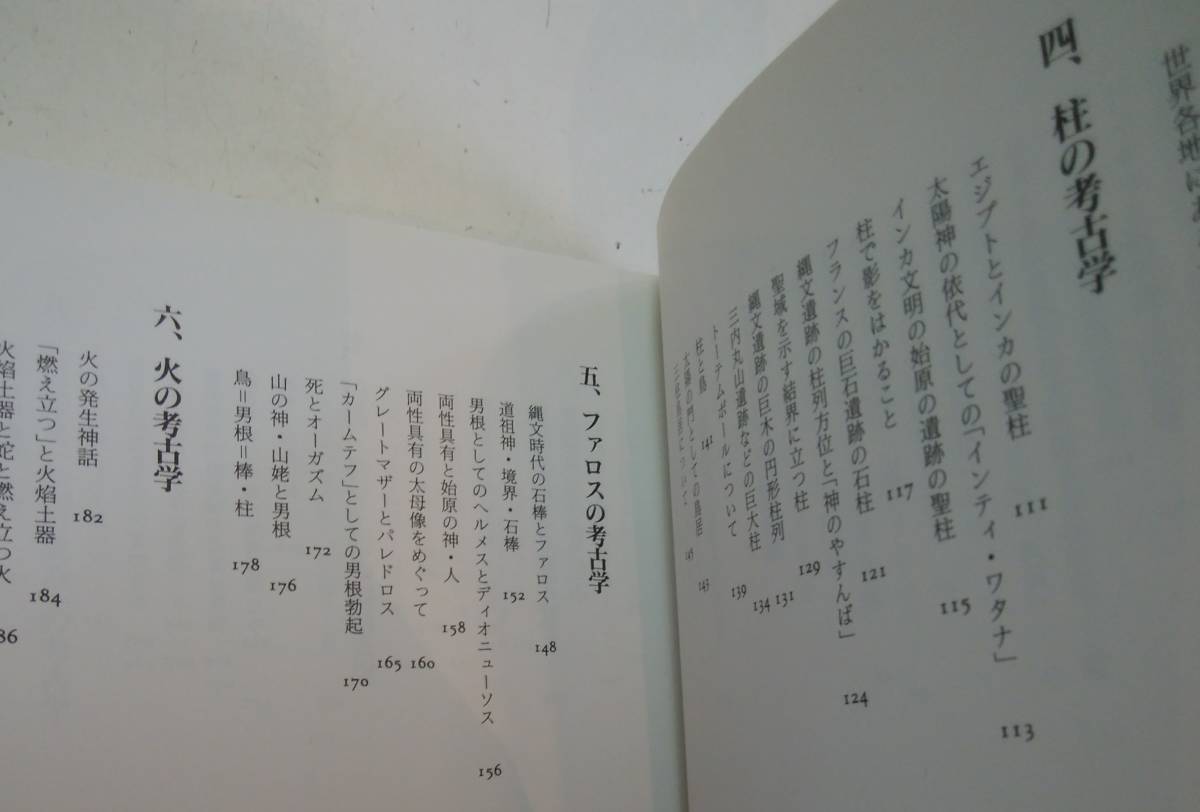 世界各地に
四、柱の考古学
エジプトとインカの聖柱 111
太陽神の依代としての「インティ・ワタナ」 113
インカ文明の始原の遺跡の聖柱 115
柱で影をはかること 117
フランスの巨石遺跡の石柱 121
縄文遺跡の柱列方位と「神のやすんば」 124
聖域を示す結界に立つ柱 129
縄文遺跡の巨木の円形柱列 131
三内丸山遺跡などの巨大柱 134
トーテムポールについて 139
柱と鳥 141
太陽の門としての鳥居 143
三柱鳥居について 145
五、ファロスの考古学
縄文時代の石棒とファロス 148
道祖神・境界・石棒 152
男根としてのヘルメスとディオニューソス 156
両性具有と始原の神・人 158
両性具有の太母像をめぐって 160
グレートマザーとパレドロス 165
「カームテフ」としての男根勃起 170
死とオーガズム 172
山の神・山姥と男根 176
鳥＝男根＝棒・柱 178
六、火の考古学
火の発生神話 182
「燃え立つ」と火焰土器 184
火焰土器と蛇と燃え立つ火 86